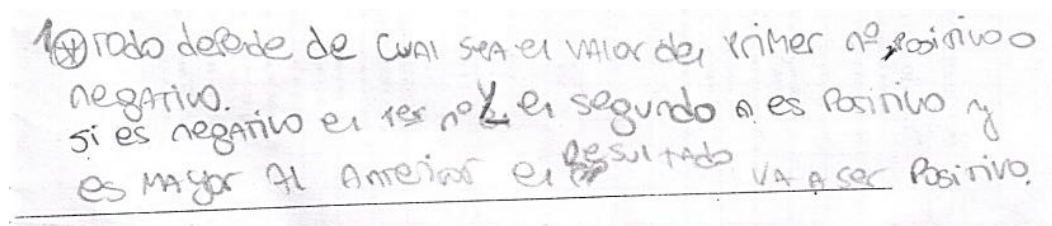 1⊛ Todo depende de cual sea el valor del primer nº, positivo o
negativo.
si es negativo el 1er nº y el segundo n es Positivo y
es mayor al anterior el resultado va a ser Positivo.